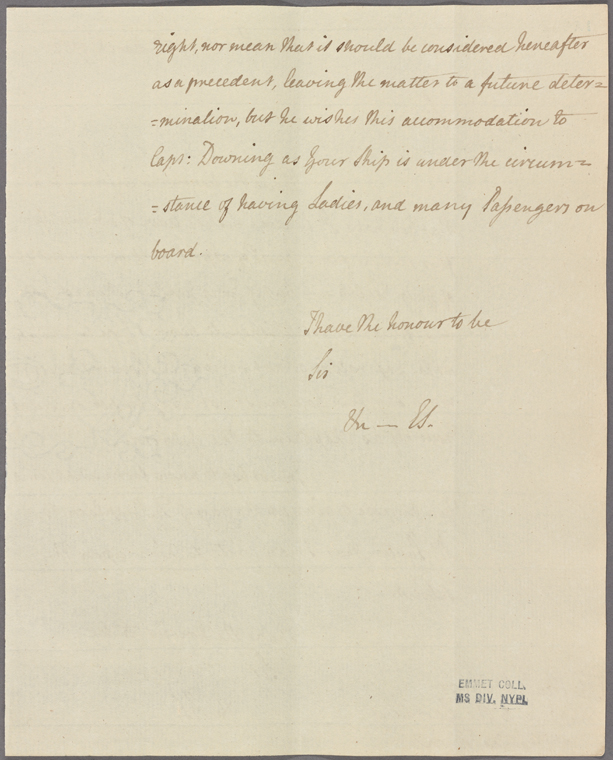 right, nor mean that it should be considered hereafter
as a precedent, leaving the matter to a future deter=
=mination, but he wishes this accommodation to
Capt: Downing as Your Ship is under the circum=
=stance of having Ladies, and many Passengers on
board.
I have the honour to be
Sir
EMMET COLL.
MS DIV. NYPL